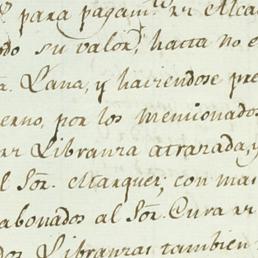 para pagam.to
do su valor, hasta no e
Lana, y haciendose pre
erno, por los mencionados
Libranza atrazada, y
l Sor. Marques; con mas
abonados al Sor. Cura
Libranzas tambien